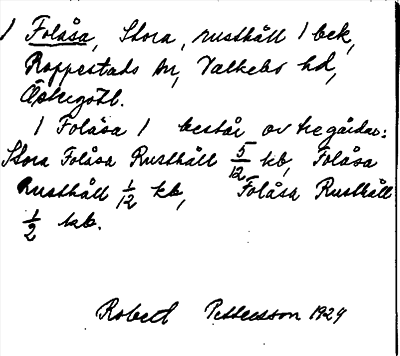 / Folåsa, Stora, rusthåll / bek,
Rappestads sn, Valkebo hd,
Östergötl.
/ Folåsa / består av tre gårdar:
Stora Folåsa Rusthåll 5/12 kb, Folåsa
Rusthåll 1/12 kb, Folåsa Rusthåll
1/2 kb.
Robert Pettersson 1929